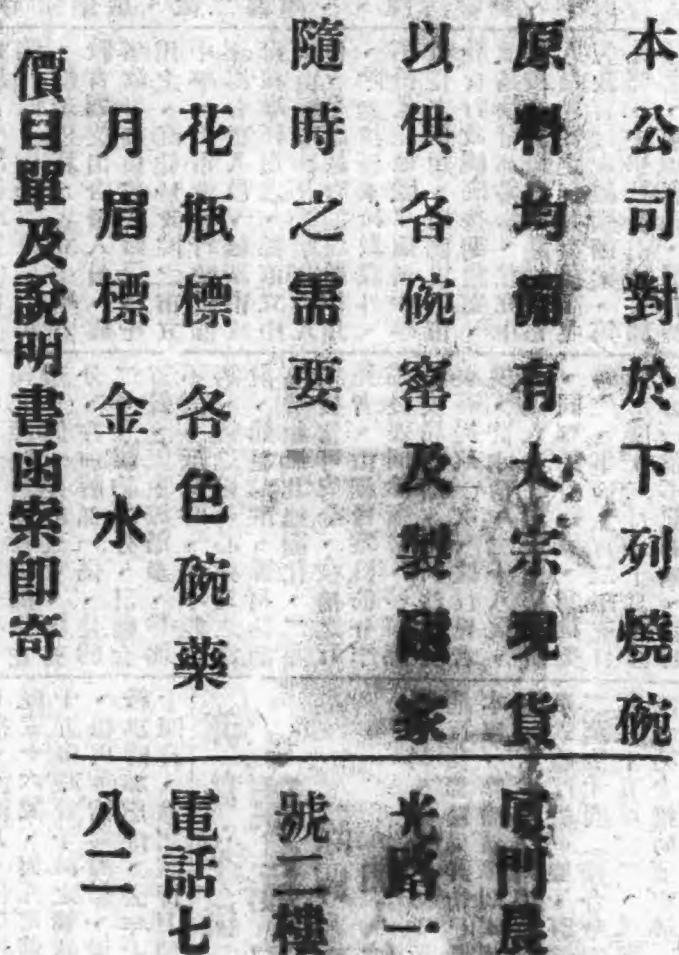 本公司對於下列燒碗
原料均備有大宗現貨
以供各碗窰及製磁家
隨時之需要
花瓶標 各色碗藥
月眉標 金水
價目單及說明書函索即寄
廈門晨
光路一
號二樓
電話七
八二